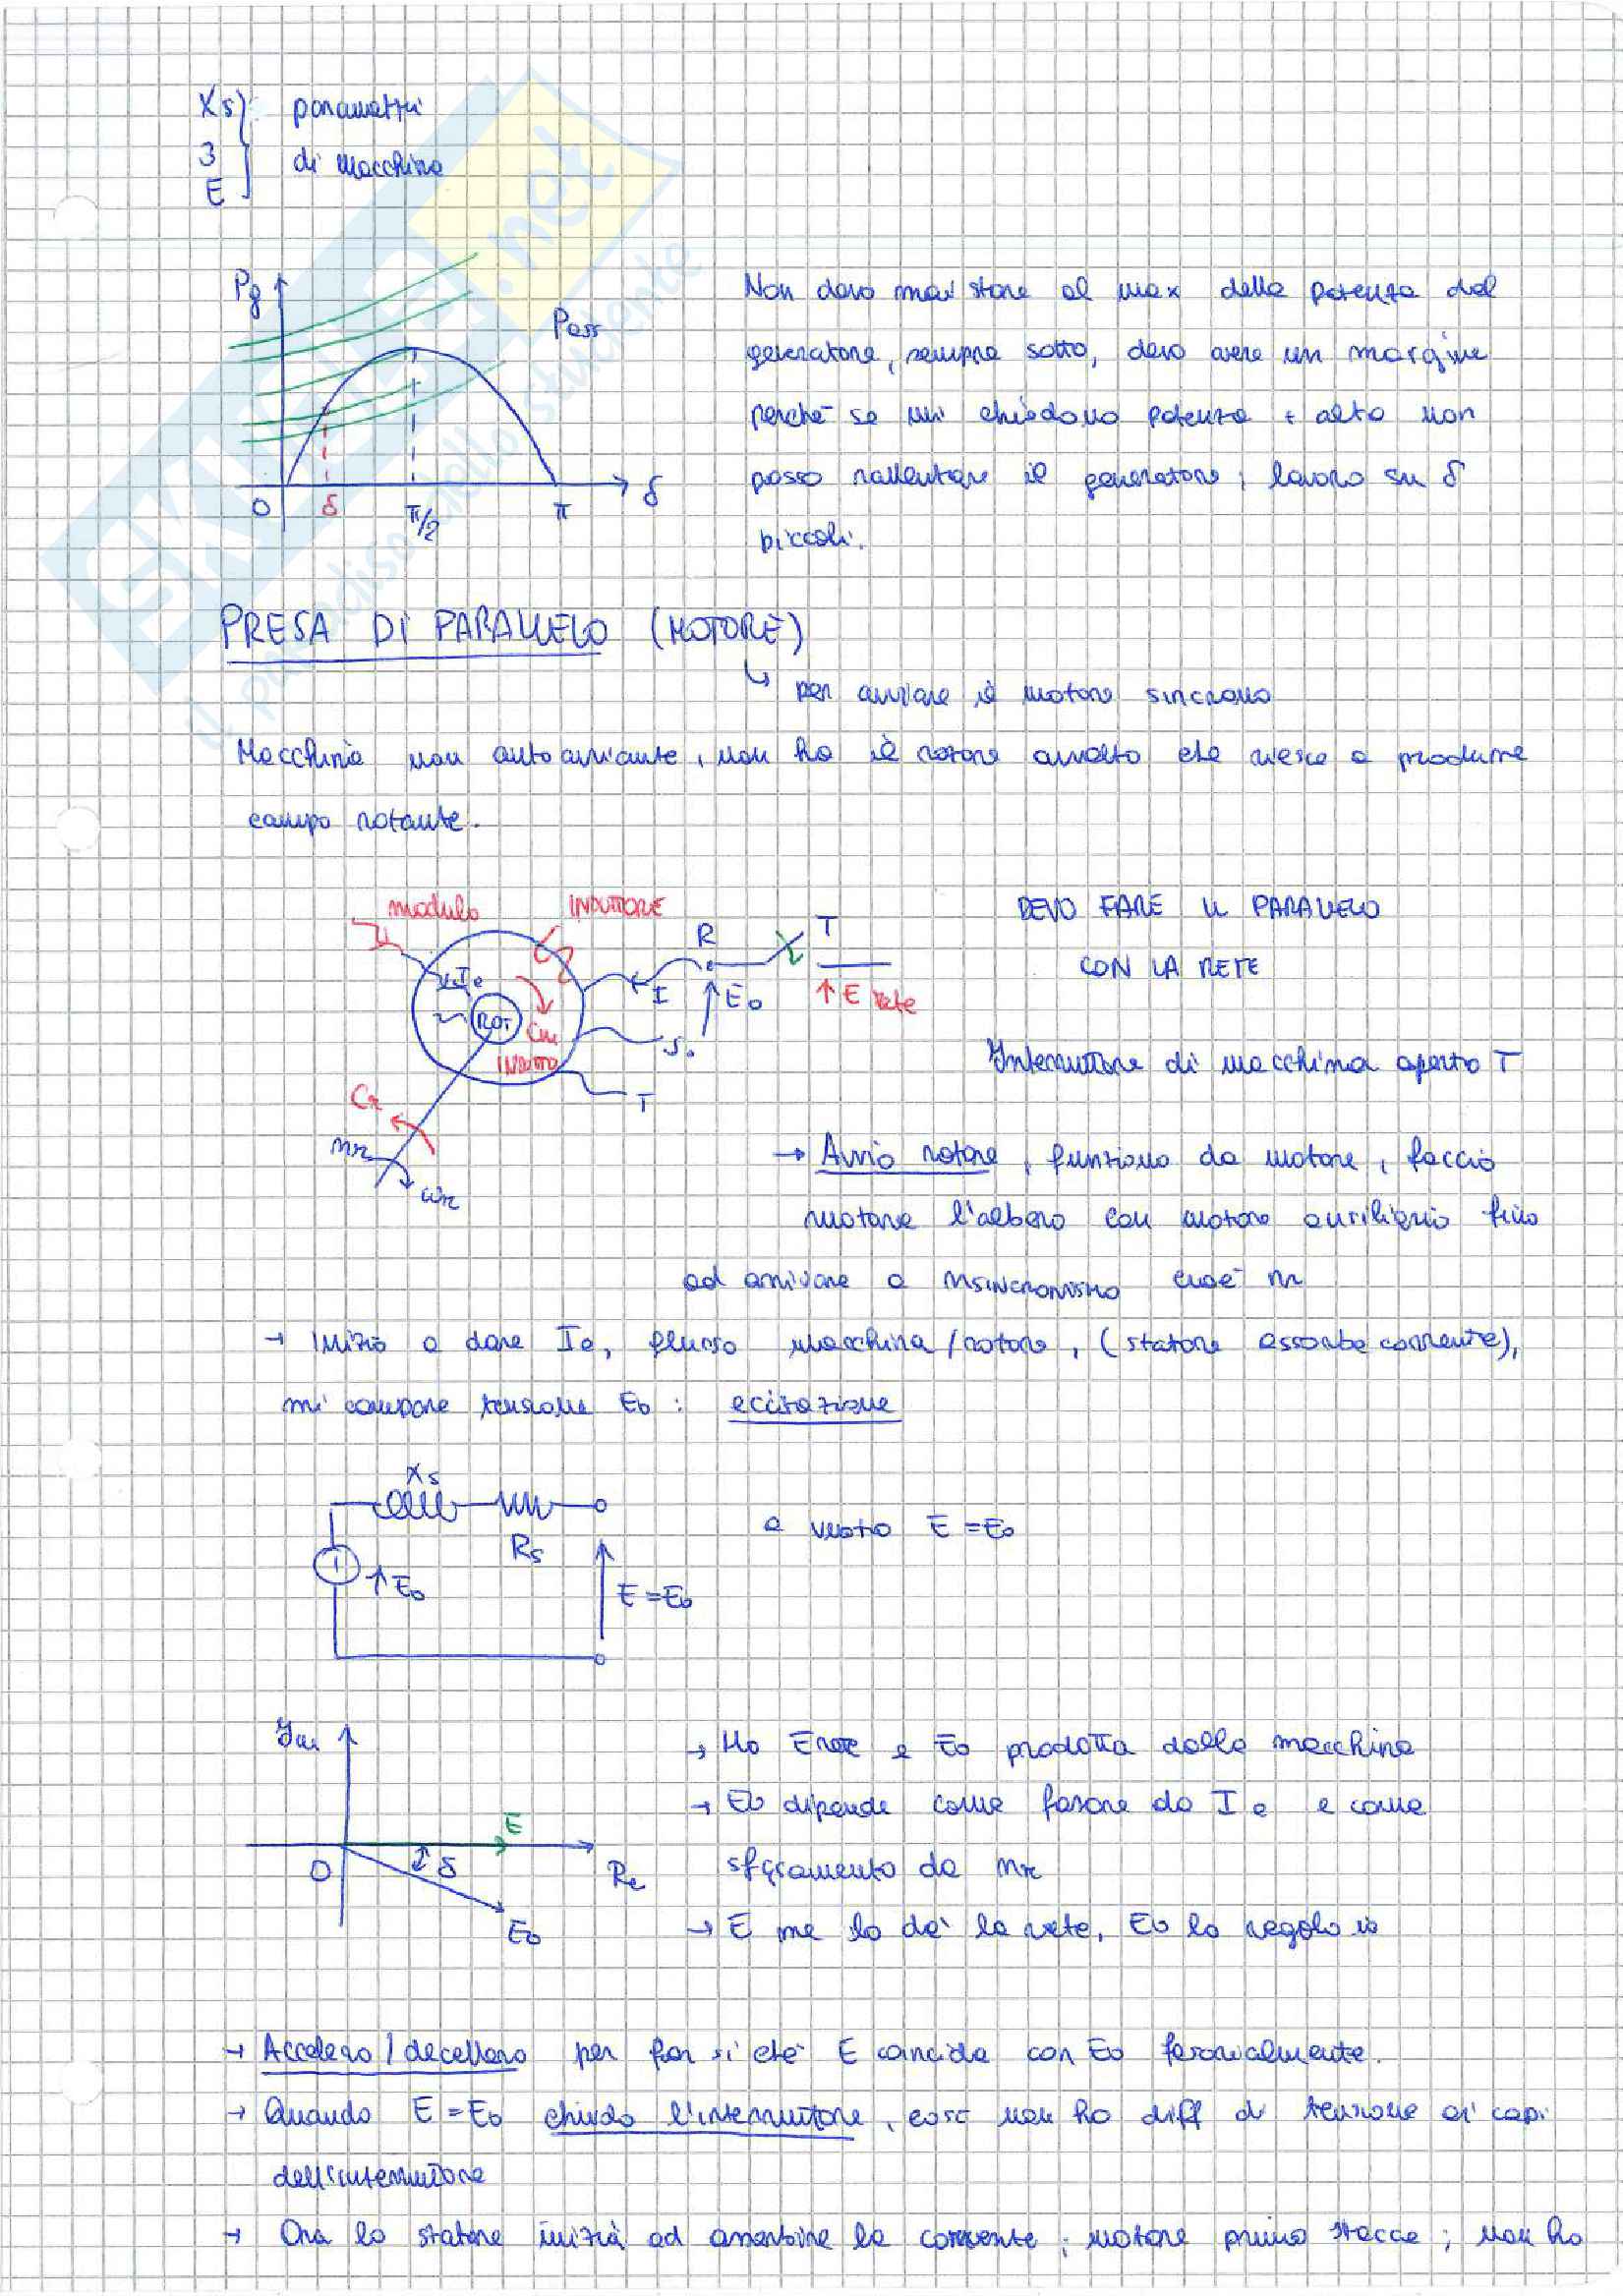 Xs } parametri
3 di macchina
E
Pg
Pass
0 δ π/2 π δ
Non devo mai stare al max della potenza del
generatore, sempre sotto, devo avere un margine
perché se mi chiedono potenza + alta non
posso rallentare il generatore; lavoro su δ
piccoli.
PRESA DI PARALLELO (MOTORE)
↳ per avviare il motore sincrono
Macchina non autoavviante, non ho il rotore avvolto che riesce a produrre
campo rotante.
modulo INDUTTORE
R T
Ie I E0 E rete
ROT Cm
INDOTTO S.
T
Cr
nr
ωr
DEVO FARE IL PARALLELO
CON LA RETE
Interruttore di macchina aperto T
→ Avvio rotore, funziono da motore, faccio
ruotare l'albero con motore auxiliario fino
ad arrivare a nsincronismo cioè nr
→ Inizio a dare Ie, flusso macchina/rotore, (statore assorbe corrente),
mi compare tensione E0 : eccitazione
Xs
Rs
E0
E = E0
a vuoto E = E0
Im
E
0 δ Re
E0
→ Ho Erete e E0 prodotta dalla macchina
→ E0 dipende come fasore da Ie e come
sfasamento da nr
→ E me lo dà la rete, E0 lo regolo io
→ Accelero/decellero per far sì che E coincida con E0 fasorialmente.
→ Quando E = E0 chiudo l'interruttore, così non ho diff di tensione ai capi
dell'interruttore
→ Ora lo statore inizia ad assorbire la corrente; motore primo stacca; non ho
SKUOLA.net
il paradiso dello studente